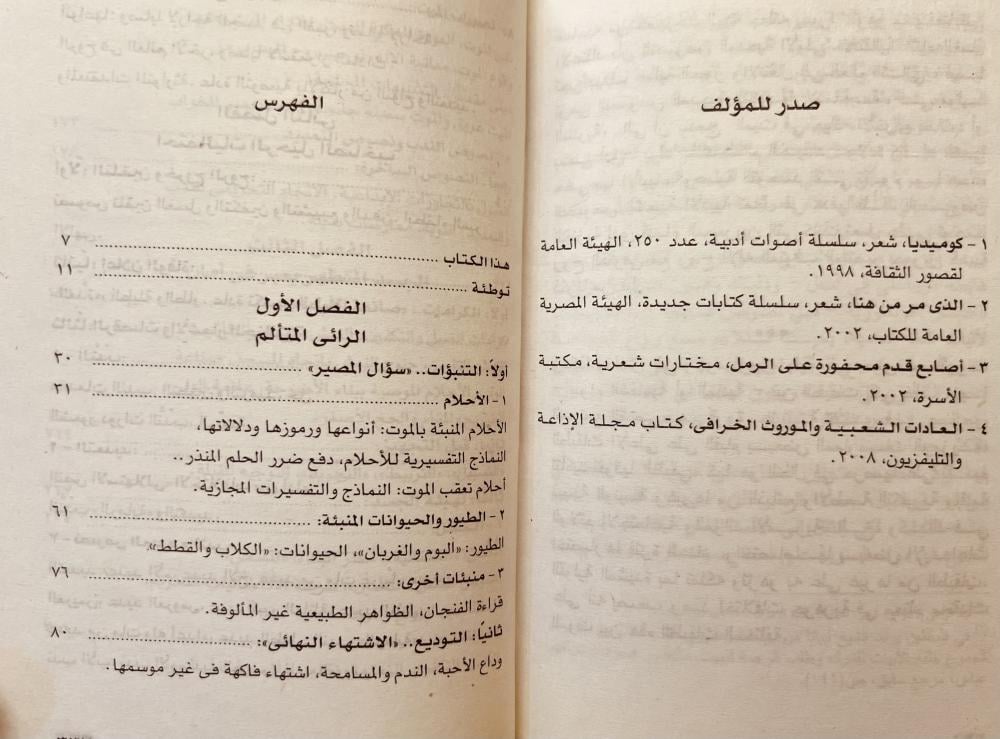 صدر للمؤلف
١ - كوميديا، شعر، سلسلة أصوات أدبية، عدد ٢٥٠، الهيئة العامة
لقصور الثقافة، ١٩٩٨.
٢ - الذى مر من هنا، شعر، سلسلة كتابات جديدة، الهيئة المصرية
العامة للكتاب، ٢٠٠٢.
٣ - أصابع قدم محفورة على الرمل، مختارات شعرية، مكتبة
الأسرة، ٢٠٠٢.
٤ - العادات الشعبية والموروث الخرافى، كتاب مجلة الإذاعة
والتليفزيون، ٢٠٠٨.
الفهرس
هذا الكتاب ................ ٧
توطئة ................ ١١
الفصل الأول
الرائى المتألم
أولاً: التنبؤات.. «سؤال المصير» ٣٠
١ - الأحلام ................ ٣١
الأحلام المنبئة بالموت: أنواعها ورموزها ودلالاتها،
النماذج التفسيرية للأحلام، دفع ضرر الحلم المنذر..
أحلام تعقب الموت: النماذج والتفسيرات المجازية.
٢ - الطيور والحيوانات المنبئة: ................ ٦١
الطيور: «البوم والغربان»، الحيوانات: «الكلاب والقطط».
٣ - منبئات أخرى: ................ ٧٦
قراءة الفنجان، الظواهر الطبيعية غير المألوفة.
ثانيًا: التوديع.. «الاشتهاء النهائى»: ................ ٨٠
وداع الأحبة، الندم والمسامحة، اشتهاء فاكهة فى غير موسمها.